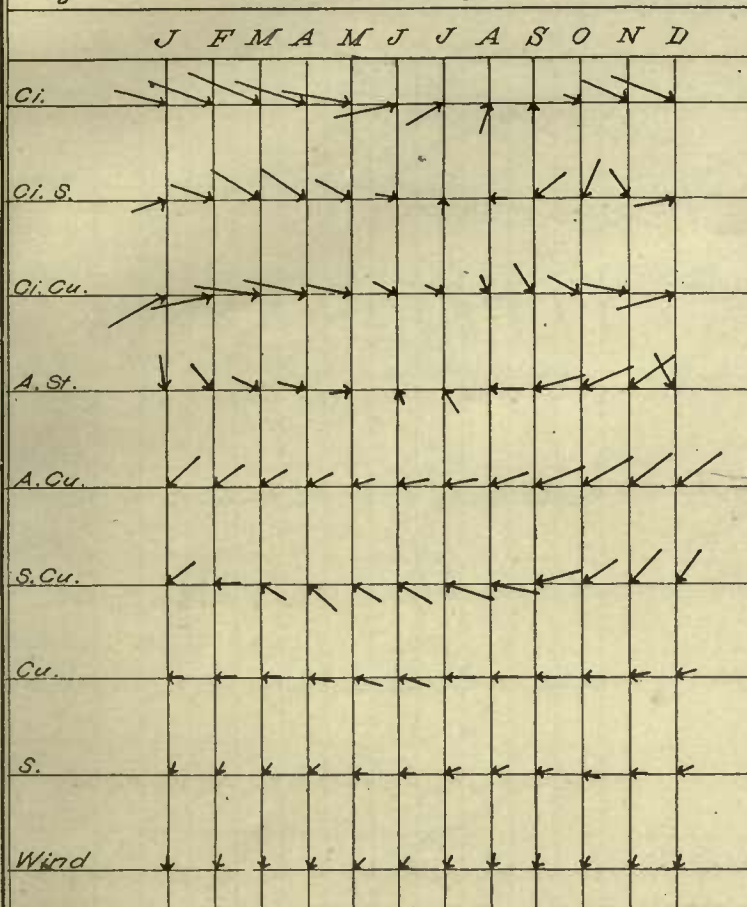 J F M A M J J A S O N D
Ci.
Ci. S.
Ci. Cu.
A. St.
A. Cu.
S. Cu.
Cu.
S.
Wind